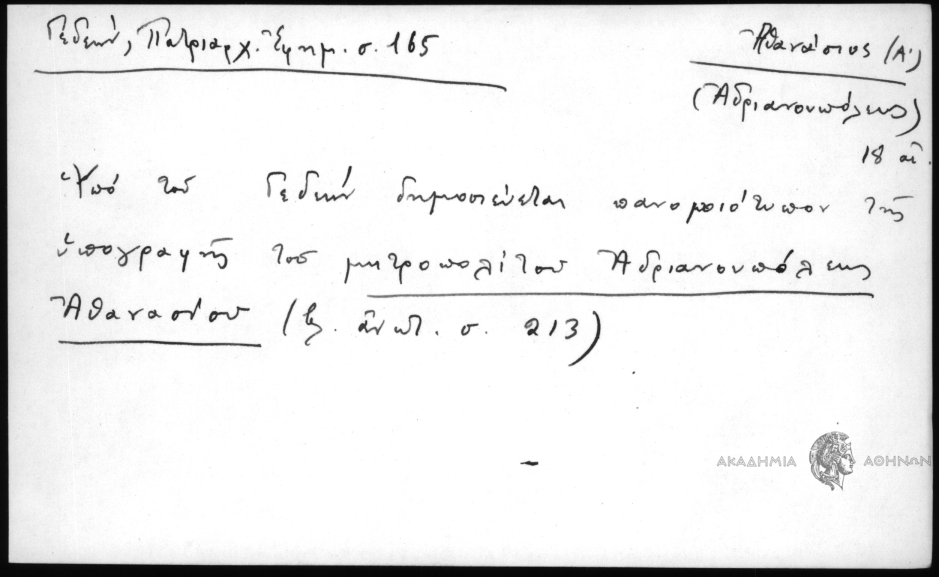 Γεδεών, Πατριαρχ. Ἐφημ. σ. 165
Ἀθανάσιος (Α')
(Ἀδριανουπόλεως)
18 αἰ.
Ὑπό τοῦ Γεδεών δημοσιεύεται πανομοιότυπον τῆς
ὑπογραφῆς τοῦ μητροπολίτου Ἀδριανουπόλεως
Ἀθανασίου (βλ. ἀνωτ. σ. 213)
ΑΚΑΔΗΜΙΑ ΑΘΗΝΩΝ